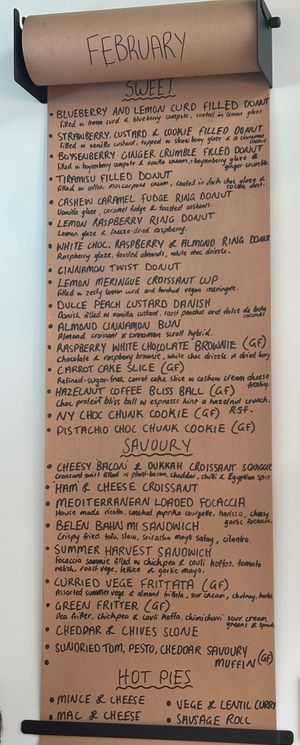 FEBRUARY
SWEET
• BLUEBERRY AND LEMON CURD FILLED DONUT
filled w lemon curd & blueberry compote, coated in lemon glaze
• STRAWBERRY, CUSTARD & COOKIE FILLED DONUT
filled w vanilla custard, topped w strawberry glaze & a cinnamon cookie
• BOYSENBERRY GINGER CRUMBLE FILLED DONUT
filled w boysenberry compote & vanilla cream, boysenberry glaze & ginger crumble.
• TIRAMISU FILLED DONUT
filled w coffee mascarpone cream, coated in dark choc glaze & cocoa dust.
• CASHEW CARAMEL FUDGE RING DONUT
Vanilla glaze, caramel fudge & toasted cashews.
• LEMON RASPBERRY RING DONUT
Lemon glaze & freeze-dried raspberry.
• WHITE CHOC, RASPBERRY & ALMOND RING DONUT
Raspberry glaze, toasted almonds, white choc drizzle.
• CINNAMON TWIST DONUT
• LEMON MERINGUE CROISSANT CUP
filled w zesty lemon curd and torched vegan meringue.
• DULCE PEACH CUSTARD DANISH
Danish filled w vanilla custard, roast peaches and dulce de leche caramel
• ALMOND CINNAMON BUN
Almond croissant x cinnamon scroll hybrid.
• RASPBERRY WHITE CHOCOLATE BROWNIE (GF)
Chocolate & raspberry brownie, white choc drizzle & dried berry
• CARROT CAKE SLICE (GF)
Refined-sugar-free carrot cake slice w cashew cream cheese frosting.
• HAZELNUT COFFEE BLISS BALL (GF)
choc protein bliss ball w espresso hint & hazelnut crunch.
• NY CHOC CHUNK COOKIE (GF) RSF.
• PISTACHIO CHOC CHUNK COOKIE (GF)
SAVOURY
• CHEESY BACON & DUKKAH CROISSANT SQUIGGLE
Croissant swirl filled w plant-bacon, cheddar, chilli & Egyptian spice.
• HAM & CHEESE CROISSANT
• MEDITERRANEAN LOADED FOCACCIA
House made ricotta, smoked paprika courgette, harissa, cheesy garlic focaccia.
• BELEN BAHN MI SANDWICH
Crispy fried tofu, slaw, sriracha mayo satay, cilantro.
• SUMMER HARVEST SANDWICH
Focaccia sammie filled w chickpea & cauli koftas, tomato relish, roast vege, lettuce & garlic mayo.
• CURRIED VEGE FRITTATA (GF)
Assorted summer vege & almond frittata, sour cream, chutney, herbs.
• GREEN FRITTER (GF)
Pea fritter, chickpea & cauli kofta, chimichurri sour cream, greens & sprouts
• CHEDDAR & CHIVES SCONE
• SUNDRIED TOM, PESTO, CHEDDAR SAVOURY MUFFIN (GF)
•
HOT PIES
• MINCE & CHEESE
• VEGE & LENTIL CURRY
• MAC & CHEESE
• SAUSAGE ROLL